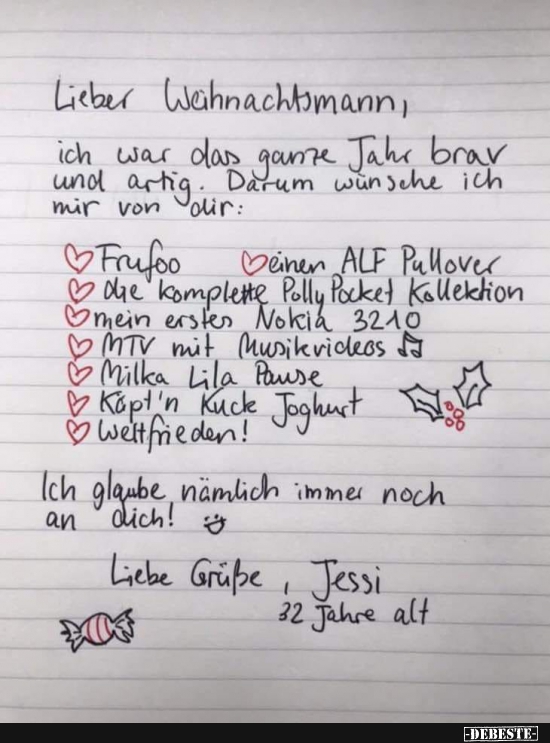 Lieber Weihnachtsmann,
ich war das ganze Jahr brav
und artig. Darum wünsche ich
mir von dir:
Frufoo einen ALF Pullover
die komplette Polly Pocket Kollektion
mein erstes Nokia 3210
MTV mit Musikvideos
Milka Lila Pause
Käpt'n Kuck Joghurt
Weltfrieden!
Ich glaube nämlich immer noch
an dich!
Liebe Grüße, Jessi
32 Jahre alt
-DEBESTE-